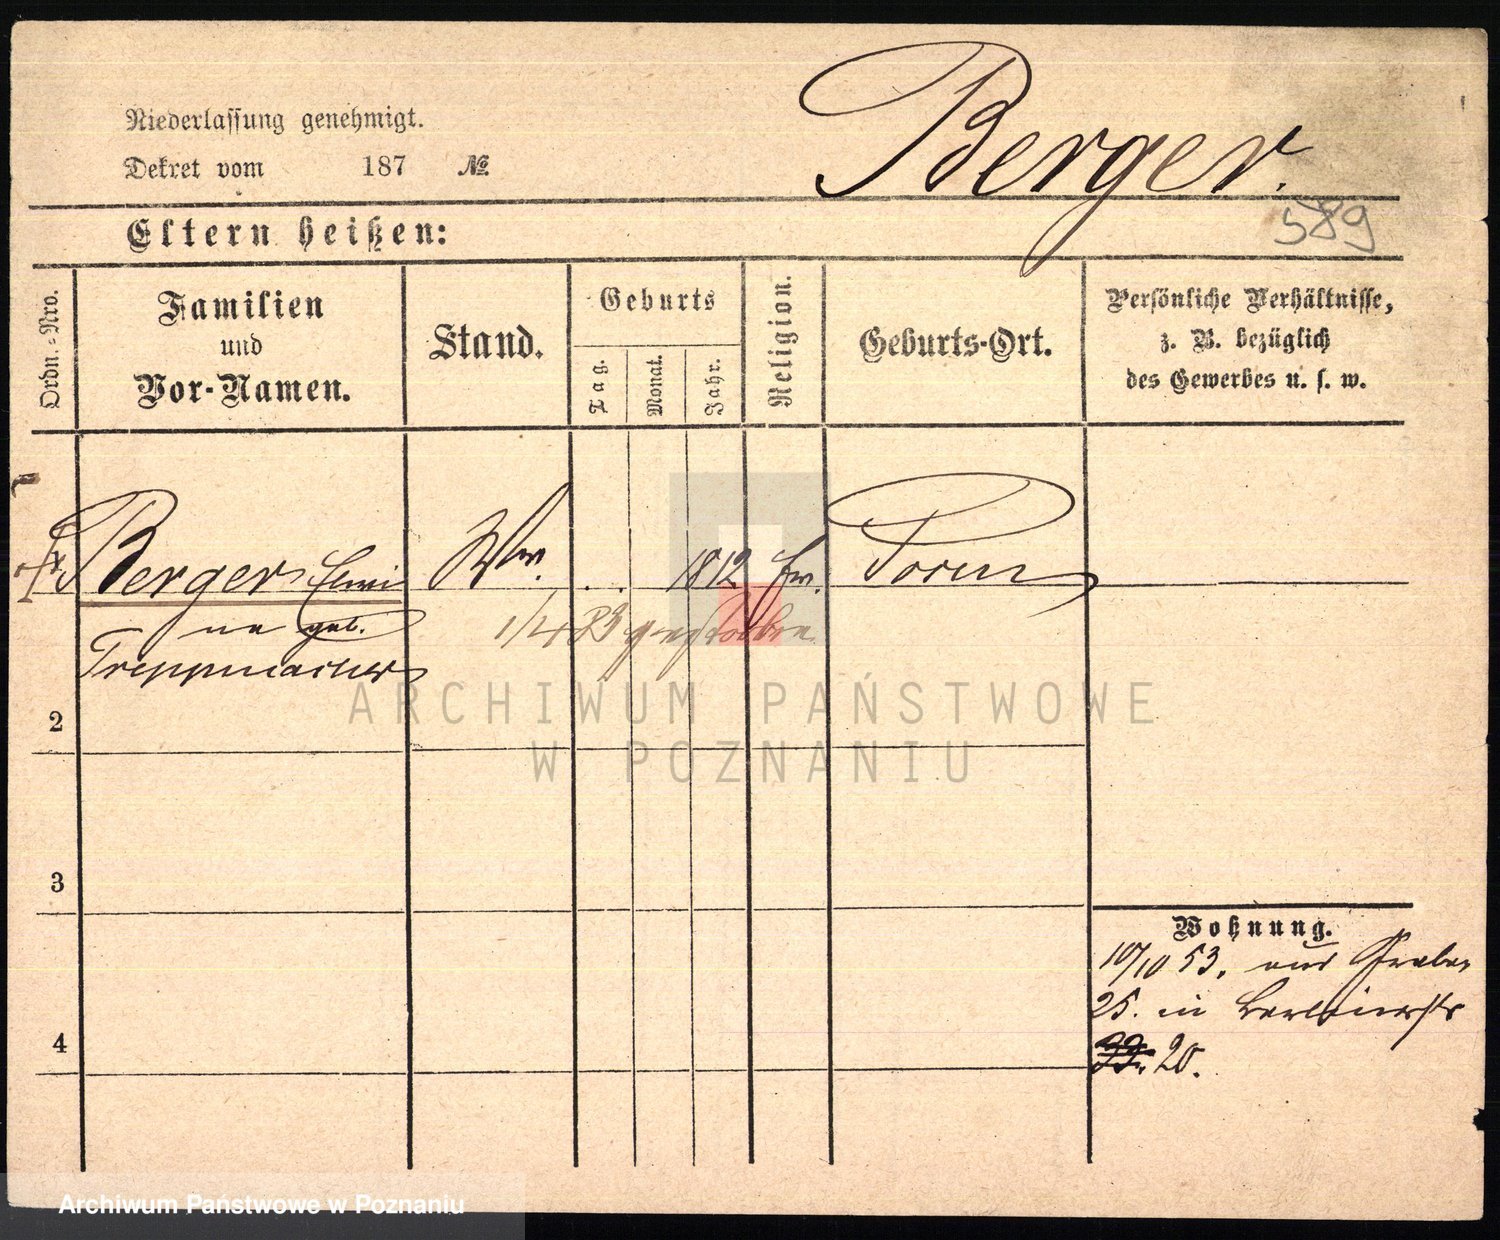 Berger.
Niederlassung genehmigt.
Dekret vom 187 №
589
Eltern heißen:
Ordn.-Nro.
Familien
und
Vor-Namen.
Stand.
Geburts
Tag.
Monat.
Jahr.
Religion.
Geburts-Ort.
Persönliche Verhältnisse,
z. B. bezüglich
des Gewerbes u. s. w.
Berger, Henri Ww. . . 1812 Ev. Posen
ne geb. 1/4 83 gestorben
Treppmacher
ARCHIWUM PAŃSTWOWE
W POZNANIU
2
3
4
Wohnung.
10/10 53. aus Graben
25. in Berlinerstr
20.
Archiwum Państwowe w Poznaniu